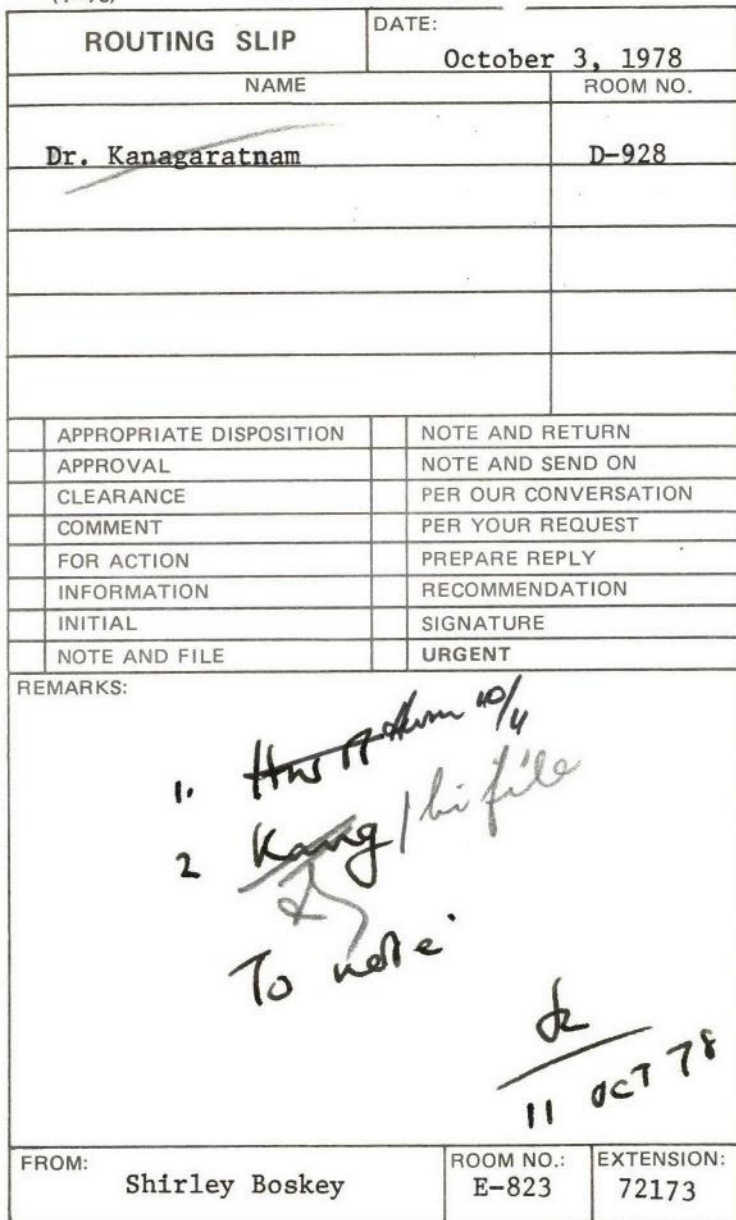 ROUTING SLIP
DATE:
October 3, 1978
NAME
ROOM NO.
Dr. Kanagaratnam
D-928
APPROPRIATE DISPOSITION
NOTE AND RETURN
APPROVAL
NOTE AND SEND ON
CLEARANCE
PER OUR CONVERSATION
COMMENT
PER YOUR REQUEST
FOR ACTION
PREPARE REPLY
INFORMATION
RECOMMENDATION
INITIAL
SIGNATURE
NOTE AND FILE
URGENT
REMARKS:
1.
2 Kang / file
To note
11 OCT 78
FROM:
Shirley Boskey
ROOM NO.:
E-823
EXTENSION:
72173